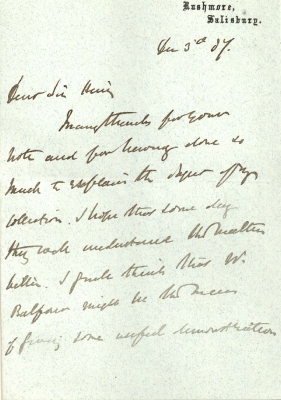 Rushmore,
Salisbury.
Dec 3rd 87.
Dear Sir Henry
Many thanks for your
note and for having done so
much to explain the object of my
collection. I hope that some day
they will understand the matter
better. I quite think that Mr
Balfour might be the means
of giving some useful demonstrations